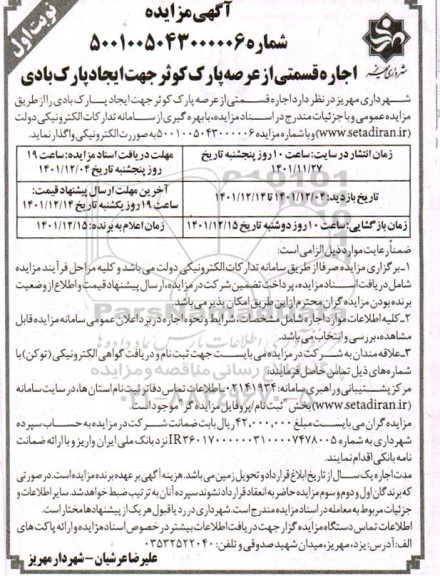 نوبت اول
آگهی مزایده
شماره ۵۰۰۱۰۰۵۰۴۳۰۰۰۰۰۶
اجاره قسمتی از عرصه پارک کوثر جهت ایجاد پارک بادی
شهرداری مهریز
شهرداری مهریز در نظر دارد اجاره قسمتی از عرصه پارک کوثر جهت ایجاد پارک بادی را از طریق
مزایده عمومی با جزئیات مندرج در اسناد مزایده، با بهره گیری از سامانه تدارکات الکترونیکی دولت
(www.setadiran.ir) و با شماره مزایده ۵۰۰۱۰۰۵۰۴۳۰۰۰۰۰۶ به صورت الکترونیکی واگذار نماید.
زمان انتشار در سایت: ساعت ۱۰ روز پنجشنبه تاریخ ۱۴۰۱/۱۱/۲۷
مهلت دریافت اسناد مزایده: ساعت ۱۹ روز پنجشنبه تاریخ ۱۴۰۱/۱۲/۰۴
تاریخ بازدید: ۱۴۰۱/۱۲/۰۴ تا ۱۴۰۱/۱۲/۱۴
آخرین مهلت ارسال پیشنهاد قیمت: ساعت ۱۹ روز یکشنبه تاریخ ۱۴۰۱/۱۲/۱۴
زمان بازگشایی: ساعت ۱۰ روز دوشنبه تاریخ ۱۴۰۱/۱۲/۱۵
زمان اعلام به برنده: ۱۴۰۱/۱۲/۱۵
ضمناً رعایت موارد ذیل الزامی است:
۱-برگزاری مزایده صرفا از طریق سامانه تدارکات الکترونیکی دولت می باشد و کلیه مراحل فرآیند مزایده
شامل دریافت اسناد مزایده، پرداخت تضمین شرکت در مزایده، ارسال پیشنهاد قیمت و اطلاع از وضعیت
برنده بودن مزایده گران محترم از این طریق امکان پذیر می باشد.
۲-کلیه اطلاعات موارد اجاره شامل مشخصات، شرایط و نحوه اجاره در برد اعلان عمومی سامانه مزایده قابل
مشاهده، بررسی و انتخاب می باشد.
۳-علاقه مندان به شرکت در مزایده می بایست جهت ثبت نام و دریافت گواهی الکترونیکی (توکن) با
شماره های ذیل تماس حاصل فرمایند:
مرکز پشتیبانی و راهبری سامانه: ۰۲۱۴۱۹۳۴- اطلاعات تماس دفاتر ثبت نام استان ها، در سایت سامانه
(www.setadiran.ir) بخش "ثبت نام/پروفایل مزایده گر" موجود است.
مزایده گران می بایست مبلغ ۴۲,۰۰۰,۰۰۰ ریال بابت ضمانت شرکت در مزایده به حساب سپرده
شهرداری به شماره نزد بانک ملی ایران واریز و یا ارائه ضمانت
نامه بانکی اقدام نمایند.
مدت اجاره یک سال از تاریخ ابلاغ قرارداد و تحویل زمین می باشد. هزینه آگهی بر عهده برنده مزایده است. در صورتی
که برندگان اول و دوم و سوم مزایده حاضر به انعقاد قرارداد نشوند سپرده آنان به ترتیب ضبط خواهد شد. سایر اطلاعات و
جزئیات مربوط به معامله در اسناد مزایده مندرج است. شهرداری در رد یا قبول هر یک از پیشنهادها مختار است.
اطلاعات تماس دستگاه مزایده گزار جهت دریافت اطلاعات بیشتر در خصوص اسناد مزایده و ارائه پاکت های
الف: آدرس: یزد، مهریز، میدان شهید صدوقی و تلفن: ۰۳۵۳۲۵۲۲۰۴۰
علیرضا عرشیان - شهردار مهریز